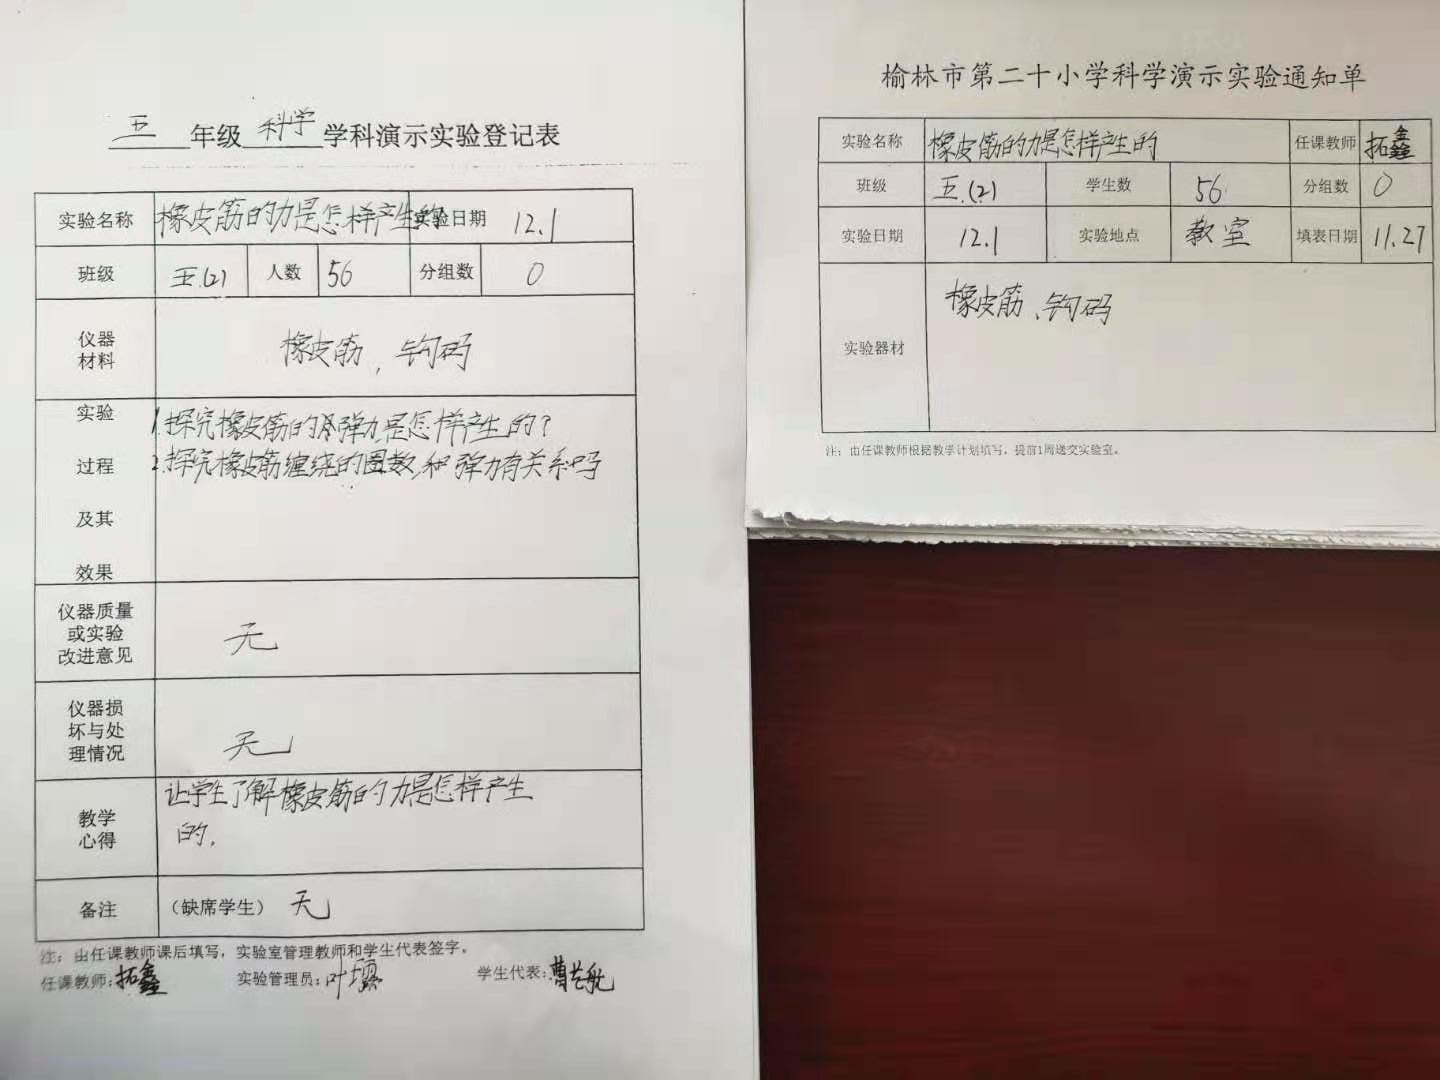 五年级科学学科演示实验登记表
实验名称 橡皮筋的力是怎样产生的 实验日期 12.1
班级 五.(2) 人数 56 分组数 0
仪器
材料
橡皮筋，钩码
实验
过程
及其
效果
1.探究橡皮筋的弹力是怎样产生的？
2.探究橡皮筋缠绕的圈数,和弹力有关系吗
仪器质量
或实验
改进意见
无
仪器损
坏与处
理情况
无
教学
心得
让学生了解橡皮筋的力是怎样产生
的.
备注 （缺席学生） 无
注：由任课教师课后填写，实验室管理教师和学生代表签字。
任课教师:拓鑫 实验管理员:叶 学生代表:曹艺航
榆林市第二十小学科学演示实验通知单
实验名称 橡皮筋的力是怎样产生的 任课教师 拓鑫
班级 五.(2) 学生数 56 分组数 0
实验日期 12.1 实验地点 教室 填表日期 11.27
实验器材 橡皮筋、钩码
注：由任课教师根据教学计划填写，提前1周送交实验室。